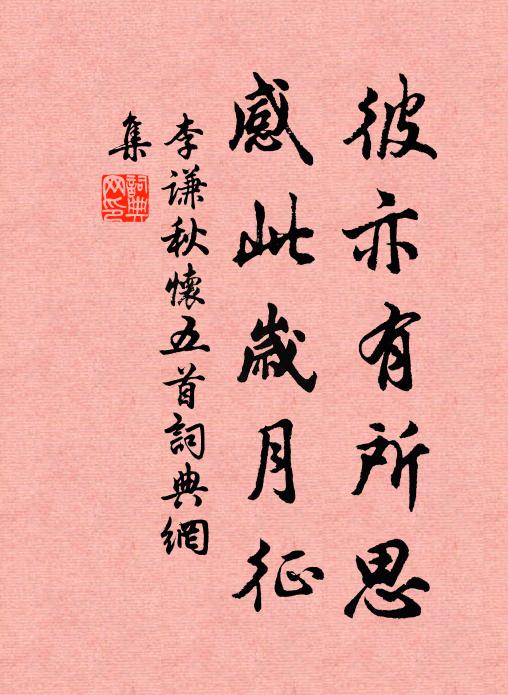 彼亦有所思
感此歲月征
李谦秋懷五首詞典網
集
詞典
网印